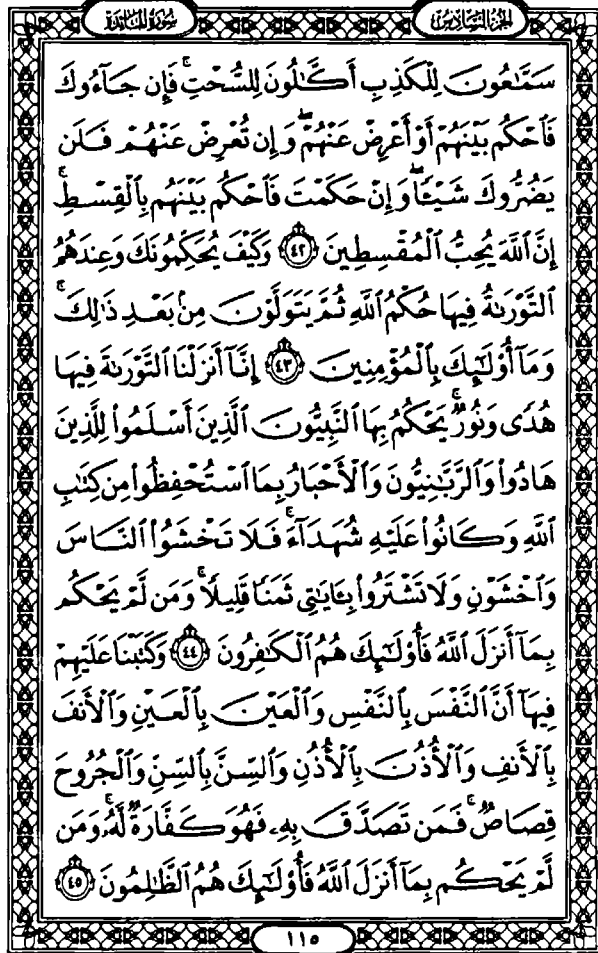 سُورَةُ المَائِدَة
الجُزءُ السَّادِسُ
سَمَّٰعُونَ لِلْكَذِبِ أَكَّٰلُونَ لِلسُّحْتِ ۚ فَإِن جَآءُوكَ
فَٱحْكُم بَيْنَهُمْ أَوْ أَعْرِضْ عَنْهُمْ ۖ وَإِن تُعْرِضْ عَنْهُمْ فَلَن
يَضُرُّوكَ شَيْـًٔا ۖ وَإِنْ حَكَمْتَ فَٱحْكُم بَيْنَهُم بِٱلْقِسْطِ ۚ
إِنَّ ٱللَّهَ يُحِبُّ ٱلْمُقْسِطِينَ ٤٢ وَكَيْفَ يُحَكِّمُونَكَ وَعِندَهُمُ
ٱلتَّوْرَىٰةُ فِيهَا حُكْمُ ٱللَّهِ ثُمَّ يَتَوَلَّوْنَ مِنۢ بَعْدِ ذَٰلِكَ ۚ
وَمَآ أُو۟لَٰٓئِكَ بِٱلْمُؤْمِنِينَ ٤٣ إِنَّآ أَنزَلْنَا ٱلتَّوْرَىٰةَ فِيهَا
هُدًى وَنُورٌ ۚ يَحْكُمُ بِهَا ٱلنَّبِيُّونَ ٱلَّذِينَ أَسْلَمُوا۟ لِلَّذِينَ
هَادُوا۟ وَٱلرَّبَّٰنِيُّونَ وَٱلْأَحْبَارُ بِمَا ٱسْتُحْفِظُوا۟ مِن كِتَٰبِ
ٱللَّهِ وَكَانُوا۟ عَلَيْهِ شُهَدَآءَ ۚ فَلَا تَخْشَوُا۟ ٱلنَّاسَ
وَٱخْشَوْنِ وَلَا تَشْتَرُوا۟ بِـَٔايَٰتِى ثَمَنًا قَلِيلًا ۚ وَمَن لَّمْ يَحْكُم
بِمَآ أَنزَلَ ٱللَّهُ فَأُو۟لَٰٓئِكَ هُمُ ٱلْكَٰفِرُونَ ٤٤ وَكَتَبْنَا عَلَيْهِمْ
فِيهَآ أَنَّ ٱلنَّفْسَ بِٱلنَّفْسِ وَٱلْعَيْنَ بِٱلْعَيْنِ وَٱلْأَنفَ
بِٱلْأَنفِ وَٱلْأُذُنَ بِٱلْأُذُنِ وَٱلسِّنَّ بِٱلسِّنِّ وَٱلْجُرُوحَ
قِصَاصٌ ۚ فَمَن تَصَدَّقَ بِهِۦ فَهُوَ كَفَّارَةٌ لَّهُۥ ۚ وَمَن
لَّمْ يَحْكُم بِمَآ أَنزَلَ ٱللَّهُ فَأُو۟لَٰٓئِكَ هُمُ ٱلظَّٰلِمُونَ ٤٥
١١٥